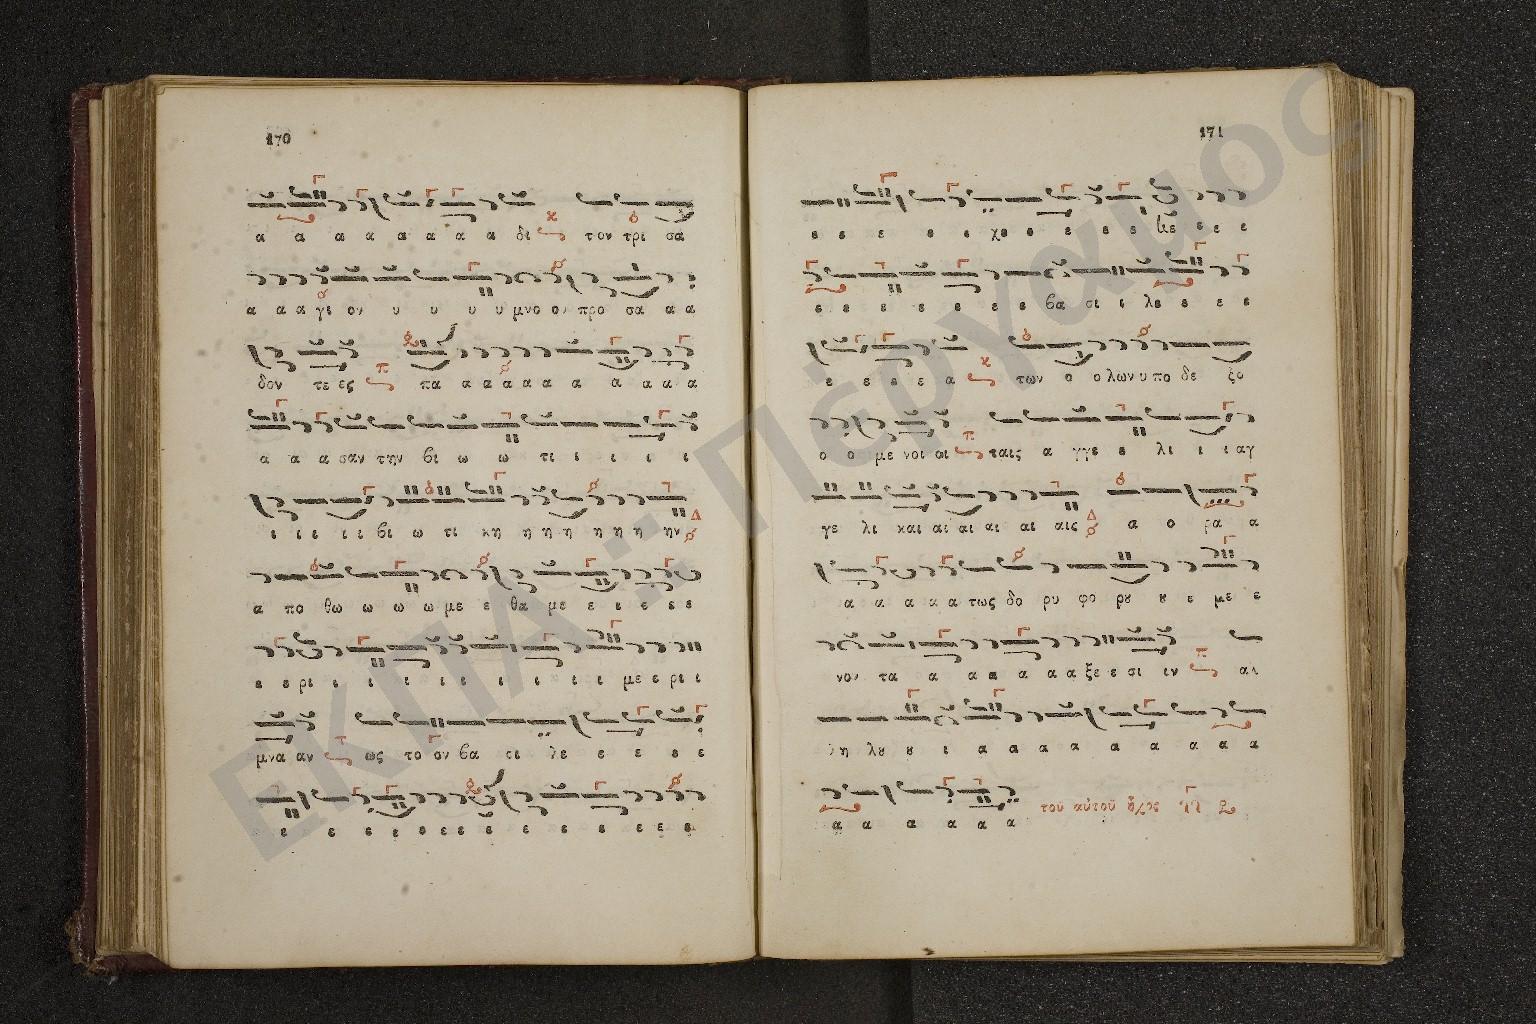 170
α α α α α α α α δι τον τρι σα
α α α γι ον υ υ υ υ υ μνο ον προ σα α α
δον τε ες πα α α α α α α α α α
α α α σαν την βι ω ω τι ι ι ι ι
ι ι ι ι βι ω τι κη η η η η η η ην
α πο θω ω ω ω με ε θα με ε ε ε ε
ε ε ρι ι ι ι ι ι ι ι ι ι με ε ρι ι
μνα αν ως το ον βα σι λε ε ε ε ε ε
ε ε ε ε ε ε ε ε ε ε ε ε ε ε ε
171
ε ε ε ε ε χο ο ε ε ε ε ε ε ε
ε ε ε ε ε ε ε βα σι ι λε ε ε ε
ε ε ε ε α των ο ο λων υ πο δε ξο
ο ο με νοι οι ταις α γγε ε λι ι ι αγ
γε λι και αι αι αι αι αις α ο ρα α
α α α α α τως δο ρυ φο ρȣ ȣ ε με ε
νον τα α α α α α ξε ε σι ιν αλ
λη λȣ ȣ ι α α α α α α α α α
α α α α α α του αὐτοῦ ἦχος
ΕΚΠΑ :: Πέργαμος